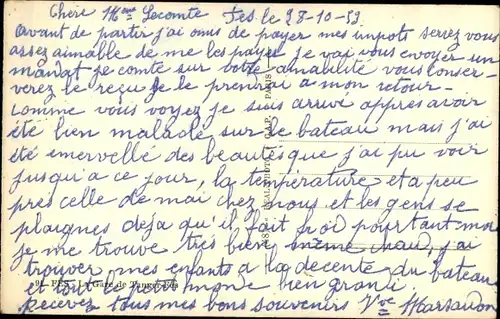 Chère Mme Lecomte Fes le 28-10-53
Avant de partir j'ai omis de payer mes impots serez vous
assez aimable de me les payer je vai vous envoyer un
mandat je comte sur votre amabilité vous conser-
verez le reçu je le prendrai a mon retour-
comme vous voyez je suis arrivé appres avoir
été bien malade sur le bateau mais j'ai
été emervellé des beautés que j'ai pu voir
jusqu'a ce jour, la température et a peu
pres celle de mai chez nous et les gens se
plaignes deja qu'il fait froid pourtant moi
je me trouve très bien même chau, j'ai
trouver mes enfants a la décente du bateau
et tout ce petit monde bien grandi.
Recevez tous mes bons souvenirs Vve Marsaudon
FES. La Gare de
PARIS